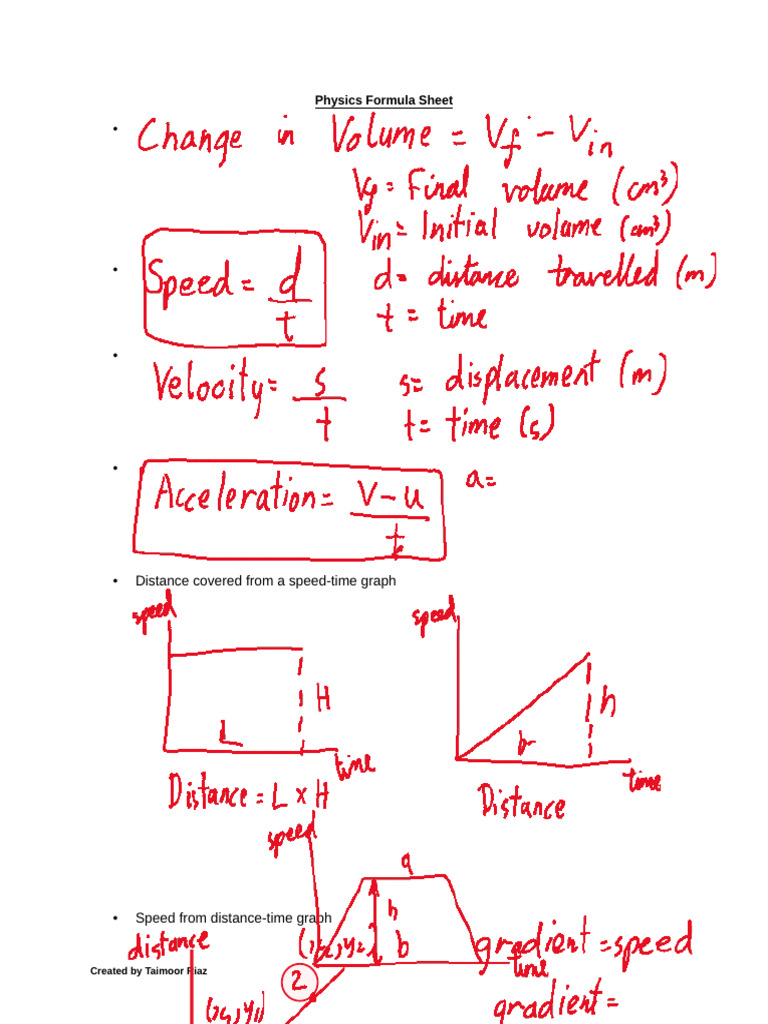 Physics Formula Sheet
• Change in Volume = Vf - Vin
Vf = Final volume (cm³)
Vin = Initial volume (cm³)
• Speed = d/t
d = distance travelled (m)
t = time
• Velocity = s/t
s = displacement (m)
t = time (s)
• Acceleration = v-u/t
a =
• Distance covered from a speed-time graph
speed
H
L
time
Distance = L × H
speed
h
b
time
Distance
speed
a
h
b
time
• Speed from distance-time graph
distance
(x₂, y₂)
2
gradient = speed
Created by Taimoor Riaz
(x₁, y₁)
gradient =